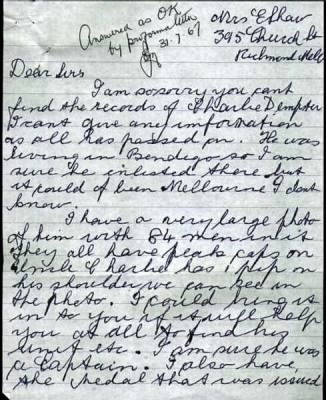 Answered as OK
by proforma letter
31.7.67
Mrs E Shaw
395 Church St
Richmond
Dear Sirs
I am so sorry you cant
find the records of Charlie Dempster
I cant give any information
as all has passed on. He was
living in Bendigo so I am
sure he enlisted there but
it could of been Melbourne I dont
know.
I have a very large photo
of him with 84 men in it
They all have peak caps on
Uncle Charlie has 1 pip on
his shoulder we can see in
the photo. I could bring it
in to you if it will help
you at all to find his
unit etc. I am sure he was
a Captain. I also have
the medal that was issued